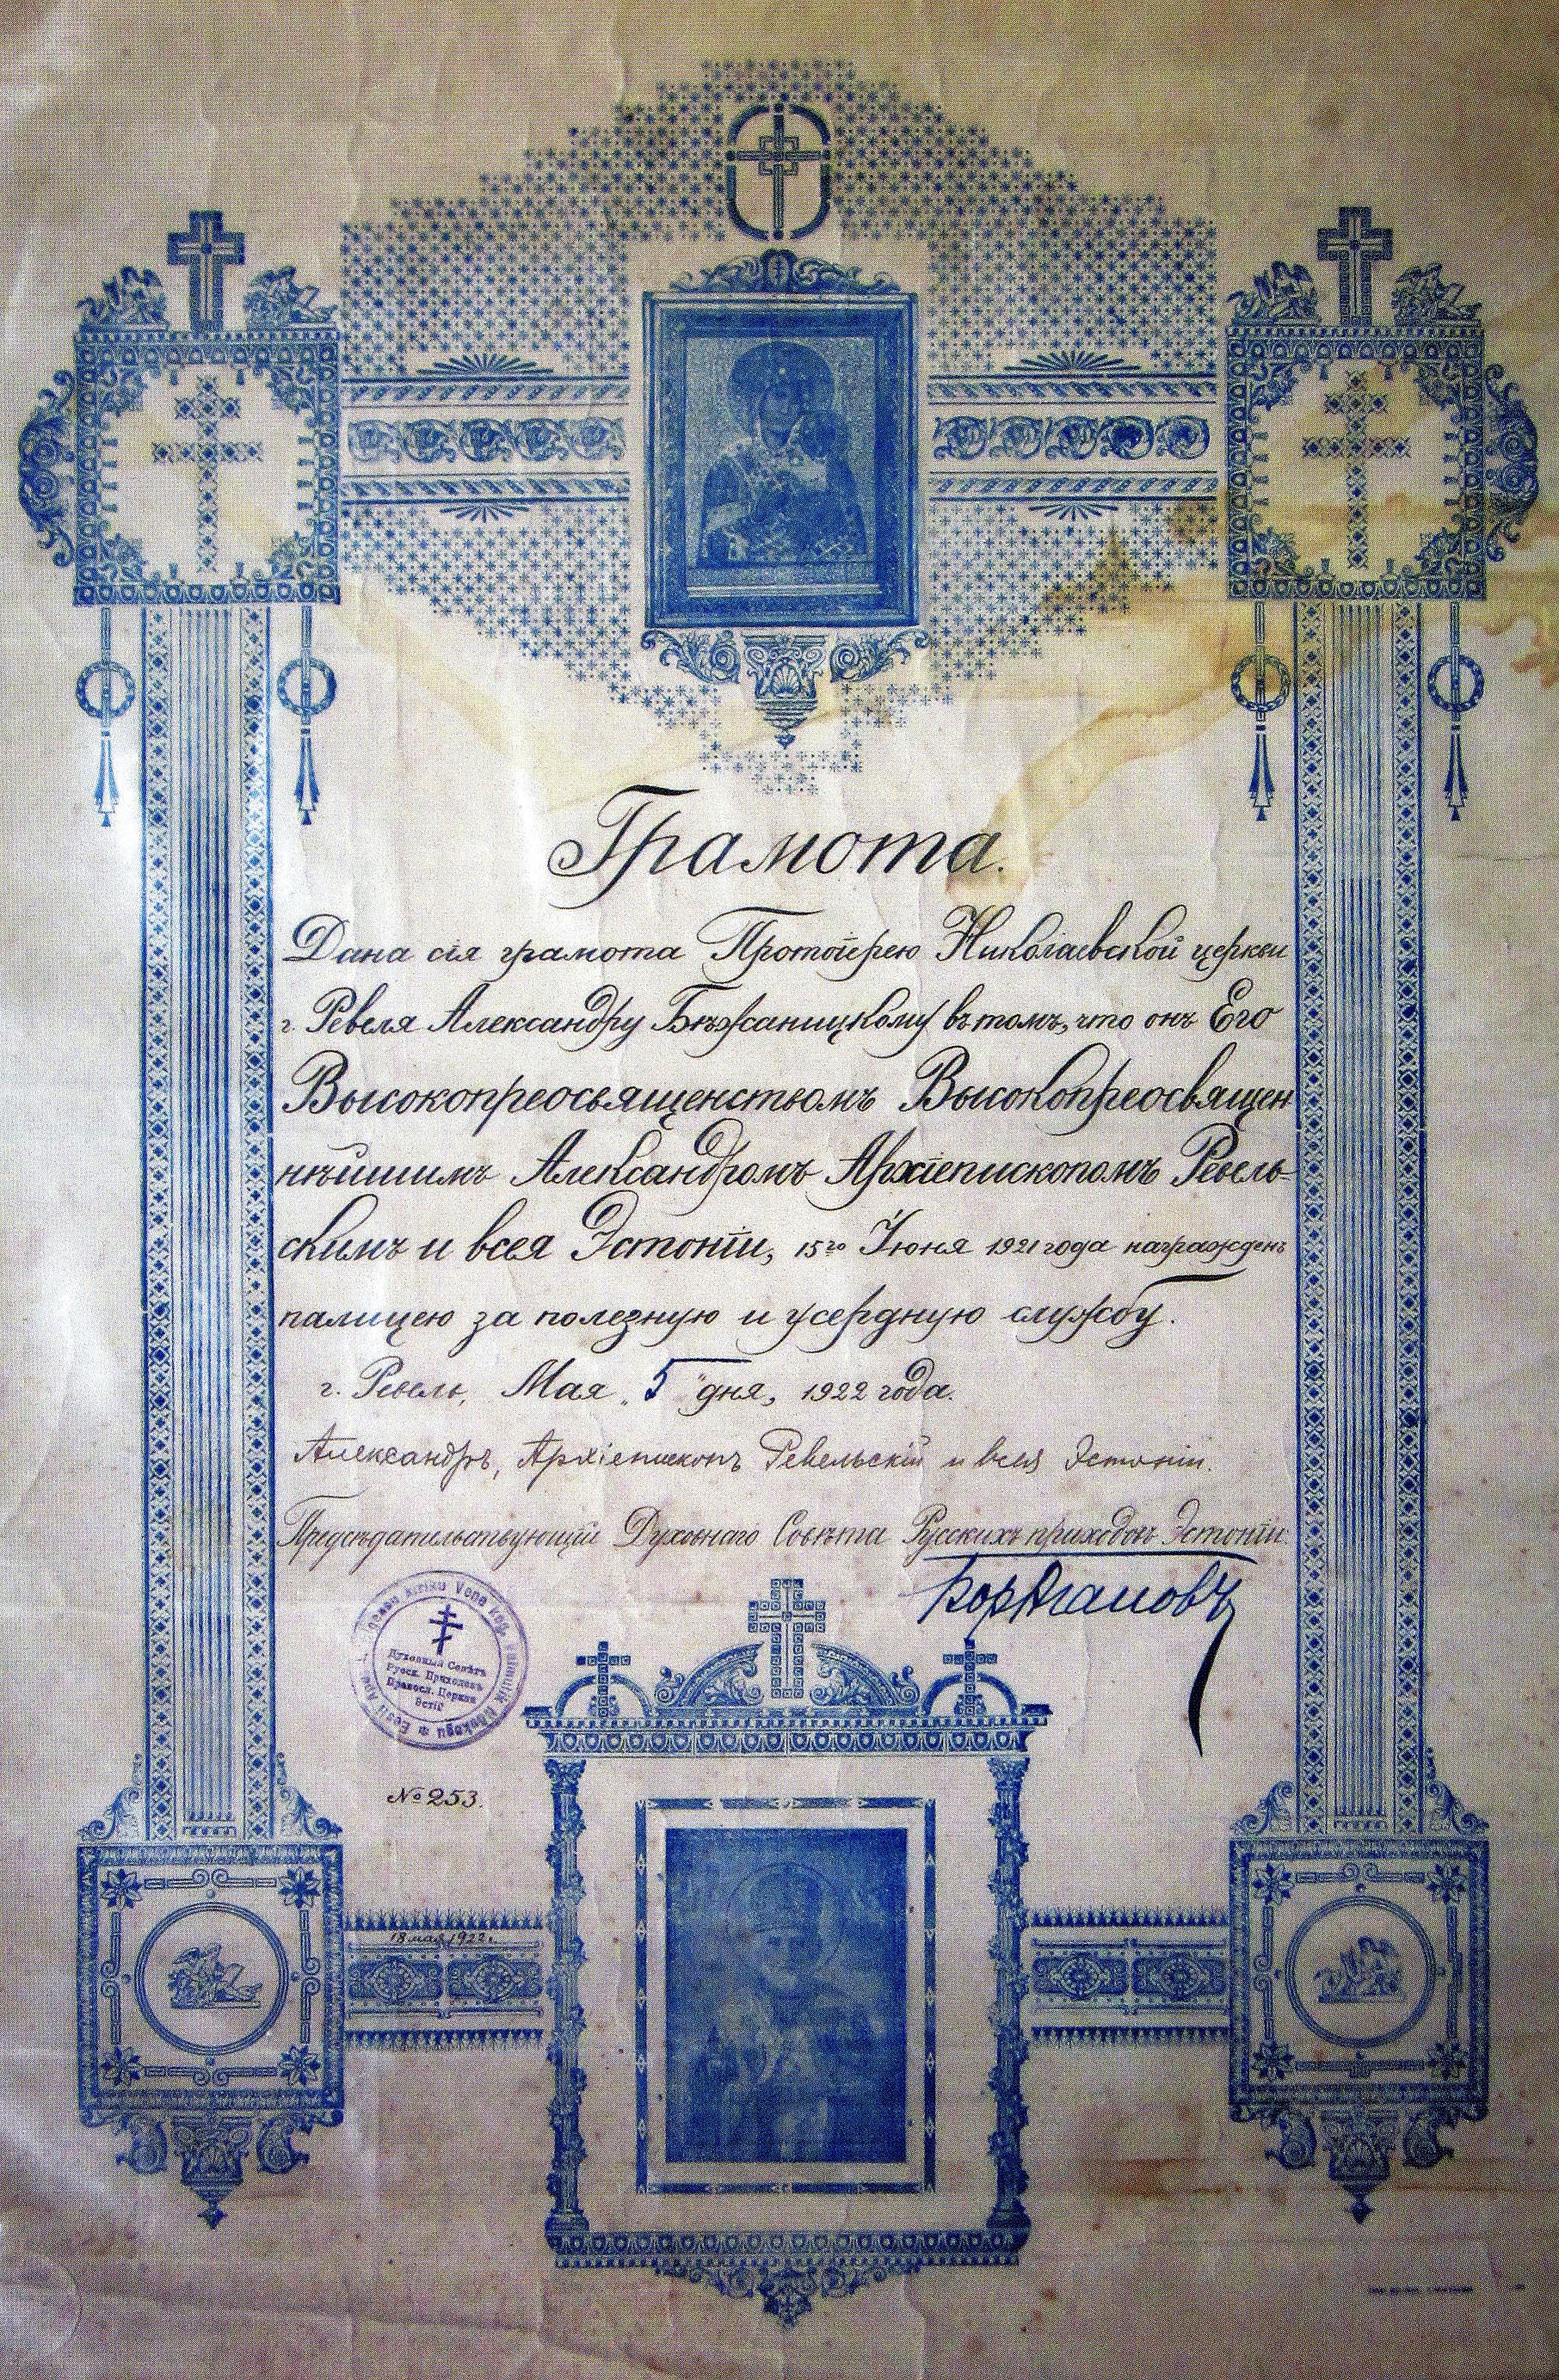 Грамота.
Дана сія грамота Протоіерею Николаевской церкви
г. Ревеля Александру Бѣжаницкому въ томъ, что онъ Его
Высокопреосвященствомъ Высокопреосвящен
нѣйшимъ Александромъ Архіепископомъ Ревель-
скимъ и всея Эстоніи, 15го Іюня 1921 года награжденъ
палицею за полезную и усердную службу.
г. Ревель, Мая „5" дня, 1922 года.
Александръ, Архіепископъ Ревельскій и всея Эстоніи.
Предсѣдательствующій Духовнаго Совѣта Русскихъ приходовъ Эстоніи:
Kiriku Vene kog. Vaimulik Nõukogu
Духовный Совѣтъ
Русск. Приходовъ
Правосл. Церкви
Эстіи
№ 253.
18 мая 1922 г.